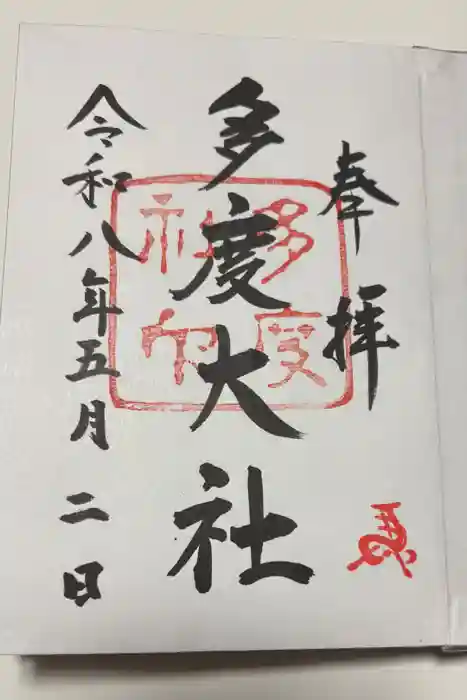 奉拝
多度大社
多度
社印
令和八年五月二日